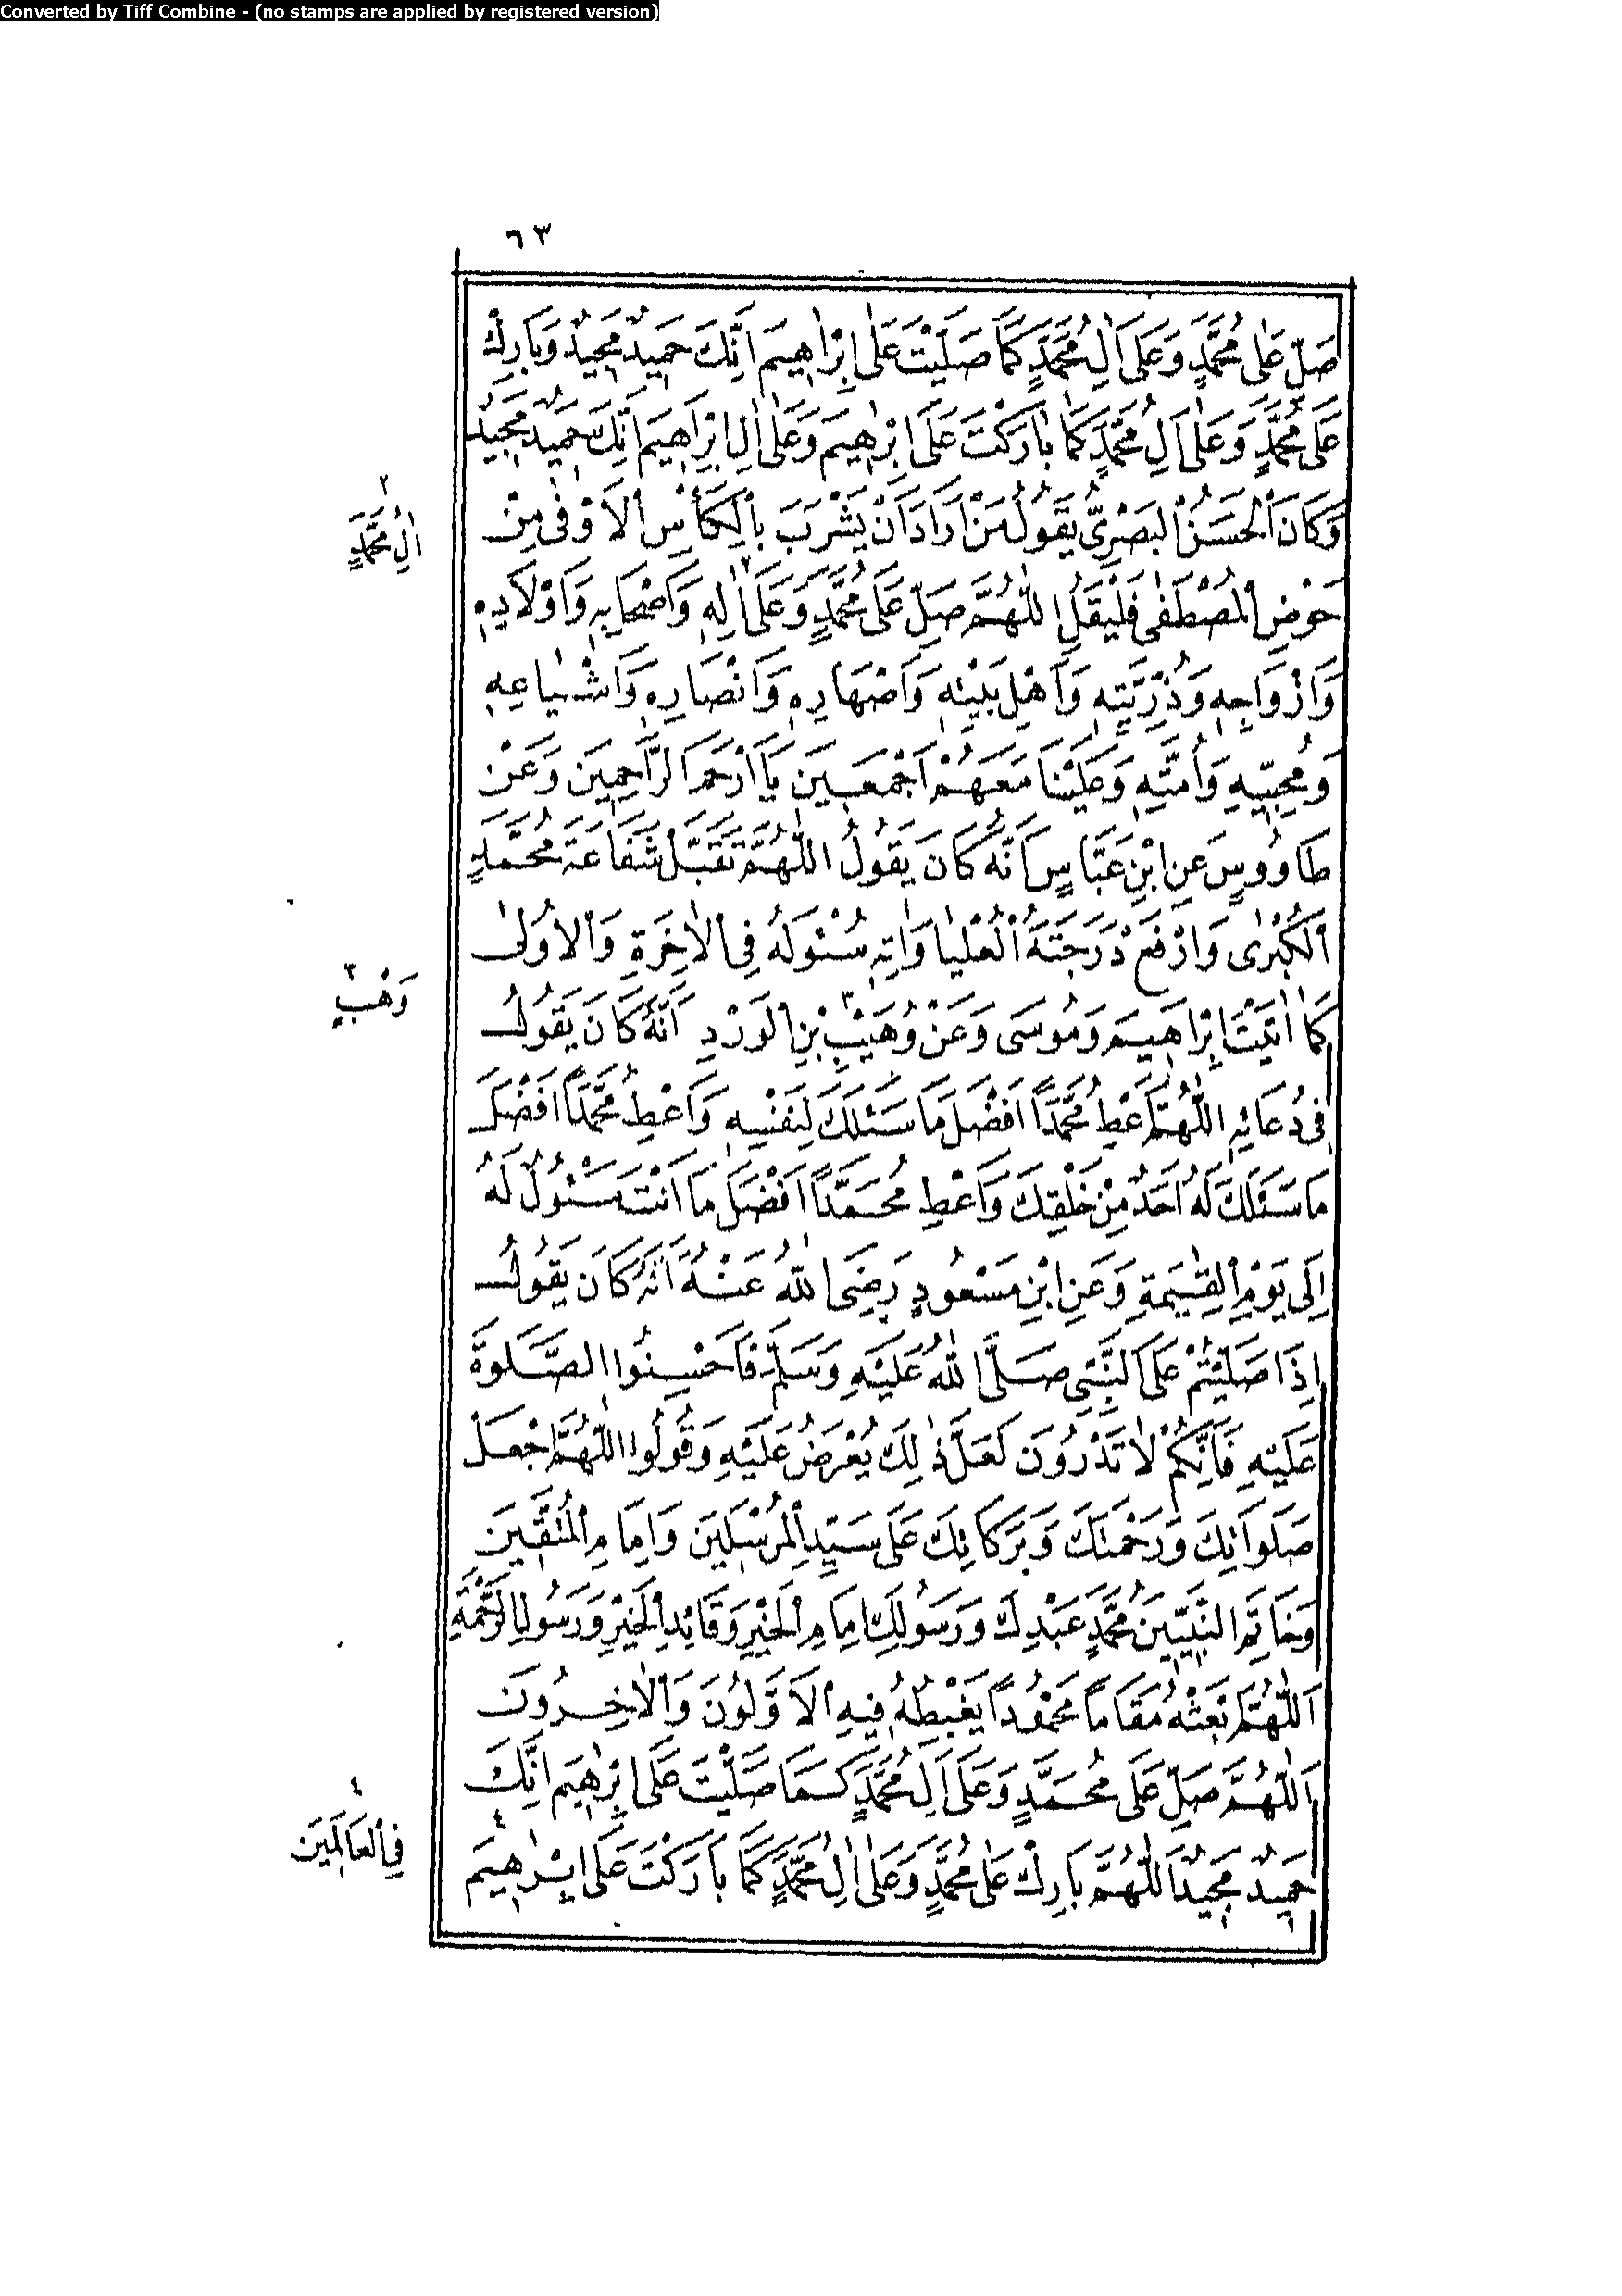 Converted by Tiff Combine - (no stamps are applied by registered version)
٦٣
صَلِّ عَلٰى مُحَمَّدٍ وَعَلٰى اٰلِ مُحَمَّدٍ كَمَا صَلَّيْتَ عَلٰى اِبْرَاهِيمَ اِنَّكَ حَمِيدٌ مَجِيدٌ وَبَارِكْ
عَلٰى مُحَمَّدٍ وَعَلٰى اٰلِ مُحَمَّدٍ كَمَا بَارَكْتَ عَلٰى اِبْرٰهِيمَ وَعَلٰى اٰلِ اِبْرَاهِيمَ اِنَّكَ حَمِيدٌ مَجِيدٌ
وَكَانَ الْحَسَنُ الْبَصْرِىُّ يَقُولُ مَنْ اَرَادَ اَنْ يَشْرَبَ بِالْكَأْسِ الْاَوْفٰى مِنْ
حَوْضِ الْمُصْطَفٰى فَلْيَقُلْ اللّٰهُمَّ صَلِّ عَلٰى مُحَمَّدٍ وَعَلٰى ٢ اٰلِهٖ وَاَصْحَابِهٖ وَاَوْلَادِهٖ
وَاَزْوَاجِهٖ وَذُرِّيَّتِهٖ وَاَهْلِ بَيْتِهٖ وَاَصْهَارِهٖ وَاَنْصَارِهٖ وَاَشْيَاعِهٖ
وَمُحِبِّيهِ وَاُمَّتِهٖ وَعَلَيْنَا مَعَهُمْ اَجْمَعِينَ يَا اَرْحَمَ الرَّاحِمِينَ وَعَنْ
طَاوُوسٍ عَنِ ابْنِ عَبَّاسٍ اَنَّهُ كَانَ يَقُولُ اللّٰهُمَّ تَقَبَّلْ شَفَاعَةَ مُحَمَّدٍ
الْكُبْرٰى وَارْفَعْ دَرَجَتَهُ الْعُلْيَا وَاٰتِهٖ سُئْوَلَهُ فِى الْاٰخِرَةِ وَالْاُولٰى
كَمَا اٰتَيْتَ اِبْرَاهِيمَ وَمُوسَى وَعَنْ وُهَيْبِ ٣ بْنِ الْوَرْدِ اَنَّهُ كَانَ يَقُولُ
فِى دُعَائِهٖ اللّٰهُمَّ اَعْطِ مُحَمَّدًا اَفْضَلَ مَا سَئَلَكَ لِنَفْسِهٖ وَاَعْطِ مُحَمَّدًا اَفْضَلَ
مَا سَئَلَكَ لَهُ اَحَدٌ مِنْ خَلْقِكَ وَاَعْطِ مُحَمَّدًا اَفْضَلَ مَا اَنْتَ مَسْئُولٌ لَهُ
اِلَى يَوْمِ الْقِيٰمَةِ وَعَنِ ابْنِ مَسْعُودٍ رَضِىَ اللّٰهُ عَنْهُ اَنَّهُ كَانَ يَقُولُ
اِذَا صَلَّيْتُمْ عَلَى النَّبِىِّ صَلَّى اللّٰهُ عَلَيْهِ وَسَلَّمَ فَاَحْسِنُوا الصَّلٰوةَ
عَلَيْهِ فَاِنَّكُمْ لَا تَدْرُونَ لَعَلَّ ذٰلِكَ يُعْرَضُ عَلَيْهِ وَقُولُوا اللّٰهُمَّ اجْعَلْ
صَلَوَاتِكَ وَرَحْمَتَكَ وَبَرَكَاتِكَ عَلٰى سَيِّدِ الْمُرْسَلِينَ وَاِمَامِ الْمُتَّقِينَ
وَخَاتِمِ النَّبِيِّينَ مُحَمَّدٍ عَبْدِكَ وَرَسُولِكَ اِمَامِ الْخَيْرِ وَقَائِدِ الْخَيْرِ وَرَسُولِ الرَّحْمَةِ
اَللّٰهُمَّ ابْعَثْهُ مَقَامًا مَحْمُودًا يَغْبِطُهُ فِيهِ الْاَوَّلُونَ وَالْاٰخِرُونَ
اَللّٰهُمَّ صَلِّ عَلٰى مُحَمَّدٍ وَعَلٰى اٰلِ مُحَمَّدٍ كَمَا صَلَّيْتَ عَلٰى اِبْرٰهِيمَ اِنَّكَ
حَمِيدٌ مَجِيدٌ اَللّٰهُمَّ بَارِكْ عَلٰى مُحَمَّدٍ وَعَلٰى اٰلِ مُحَمَّدٍ كَمَا بَارَكْتَ عَلٰى اِبْرٰهِيمَ ٤
٢
اٰلِ مُحَمَّدٍ
٣
وَهْبِ
٤
فِى الْعَالَمِينَ